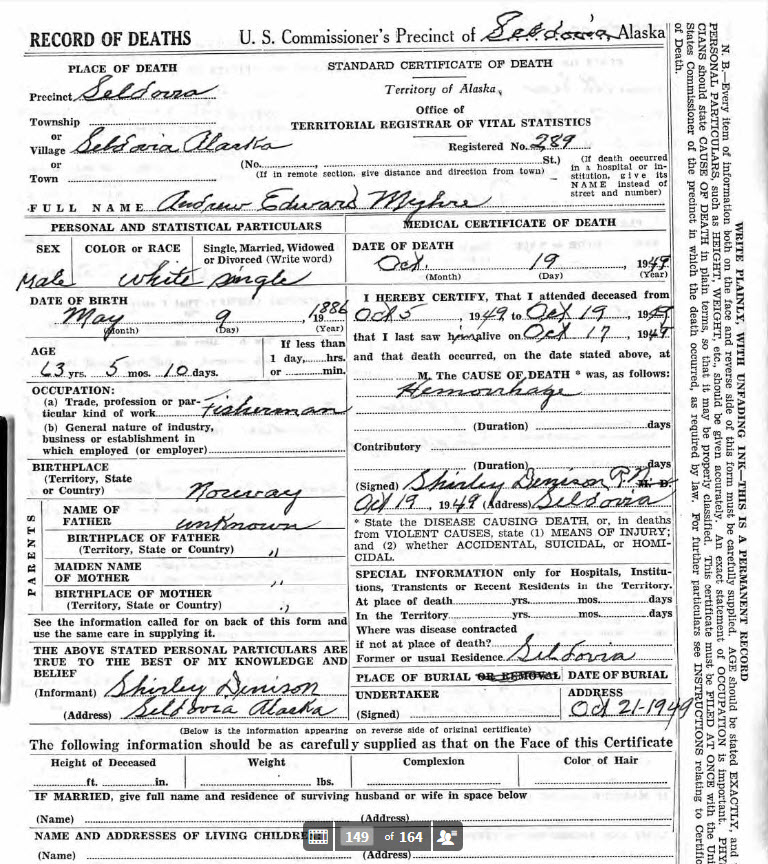 RECORD OF DEATHS U. S. Commissioner's Precinct of Seldovia, Alaska
PLACE OF DEATH
Precinct Seldovia
Township
or
Village Seldovia Alaska
or
Town
STANDARD CERTIFICATE OF DEATH
Territory of Alaska,
Office of
TERRITORIAL REGISTRAR OF VITAL STATISTICS
Registered No. 289
(No. St.)
(If in remote section, give distance and direction from town)
(If death occurred
in a hospital or in-
stitution, give its
NAME instead of
street and number)
FULL NAME Andrew Edward Myhre
PERSONAL AND STATISTICAL PARTICULARS
SEX COLOR or RACE Single, Married, Widowed
or Divorced (Write word)
Male white single
DATE OF BIRTH
May 9, 19 1886
(Month) (Day) (Year)
AGE
63 yrs. 5 mos. 10 days.
If less than
1 day, hrs.
or min.
OCCUPATION:
(a) Trade, profession or par-
ticular kind of work Fisherman
(b) General nature of industry,
business or establishment in
which employed (or employer)
BIRTHPLACE
(Territory, State
or Country) Norway
PARENTS
NAME OF
FATHER unknown
BIRTHPLACE OF FATHER
(Territory, State or Country) "
MAIDEN NAME
OF MOTHER "
BIRTHPLACE OF MOTHER
(Territory, State or Country) "
See the information called for on back of this form and
use the same care in supplying it.
THE ABOVE STATED PERSONAL PARTICULARS ARE
TRUE TO THE BEST OF MY KNOWLEDGE AND
BELIEF
(Informant) Shirley Denison
(Address) Seldovia Alaska
MEDICAL CERTIFICATE OF DEATH
DATE OF DEATH
Oct. 19, 1949
(Month) (Day) (Year)
I HEREBY CERTIFY, That I attended deceased from
Oct 5, 1949 to Oct 19, 1949
that I last saw him alive on Oct 17, 1949
and that death occurred, on the date stated above, at
M. The CAUSE OF DEATH * was, as follows:
Hemorrhage
(Duration) days
Contributory
(Duration) days
(Signed) Shirley Denison R.N. M. D.
Oct 19, 1949 (Address) Seldovia
* State the DISEASE CAUSING DEATH, or, in deaths
from VIOLENT CAUSES, state (1) MEANS OF INJURY;
and (2) whether ACCIDENTAL, SUICIDAL, or HOMI-
CIDAL.
SPECIAL INFORMATION only for Hospitals, Institu-
tions, Transients or Recent Residents in the Territory.
At place of death yrs. mos. days
In the Territory yrs. mos. days
Where was disease contracted
if not at place of death?
Former or usual Residence Seldovia
PLACE OF BURIAL OR REMOVAL DATE OF BURIAL
UNDERTAKER ADDRESS
(Signed) Oct 21-1949
(Below is the information appearing on reverse side of original certificate)
The following information should be as carefully supplied as that on the Face of this Certificate
Height of Deceased Weight Complexion Color of Hair
ft. in. lbs.
IF MARRIED, give full name and residence of surviving husband or wife in space below
(Name) (Address)
NAME AND ADDRESSES OF LIVING CHILDREN
(Name) (Address)
149 of 164
WRITE PLAINLY, WITH UNFADING INK—THIS IS A PERMANENT RECORD
N. B.—Every item of information both on the face and reverse side of this form must be carefully supplied. AGE should be stated EXACTLY, and
PERSONAL PARTICULARS, such as HEIGHT, WEIGHT, etc., should be given accurately. An exact statement of OCCUPATION is important. PHY
CIANS should state CAUSE OF DEATH in plain terms, so that it may be properly classified. This certificate must be FILED AT ONCE with the Un
States Commissioner of the precinct in which the death occurred, as required by law. For further particulars see INSTRUCTIONS relating to Certific
of Death.